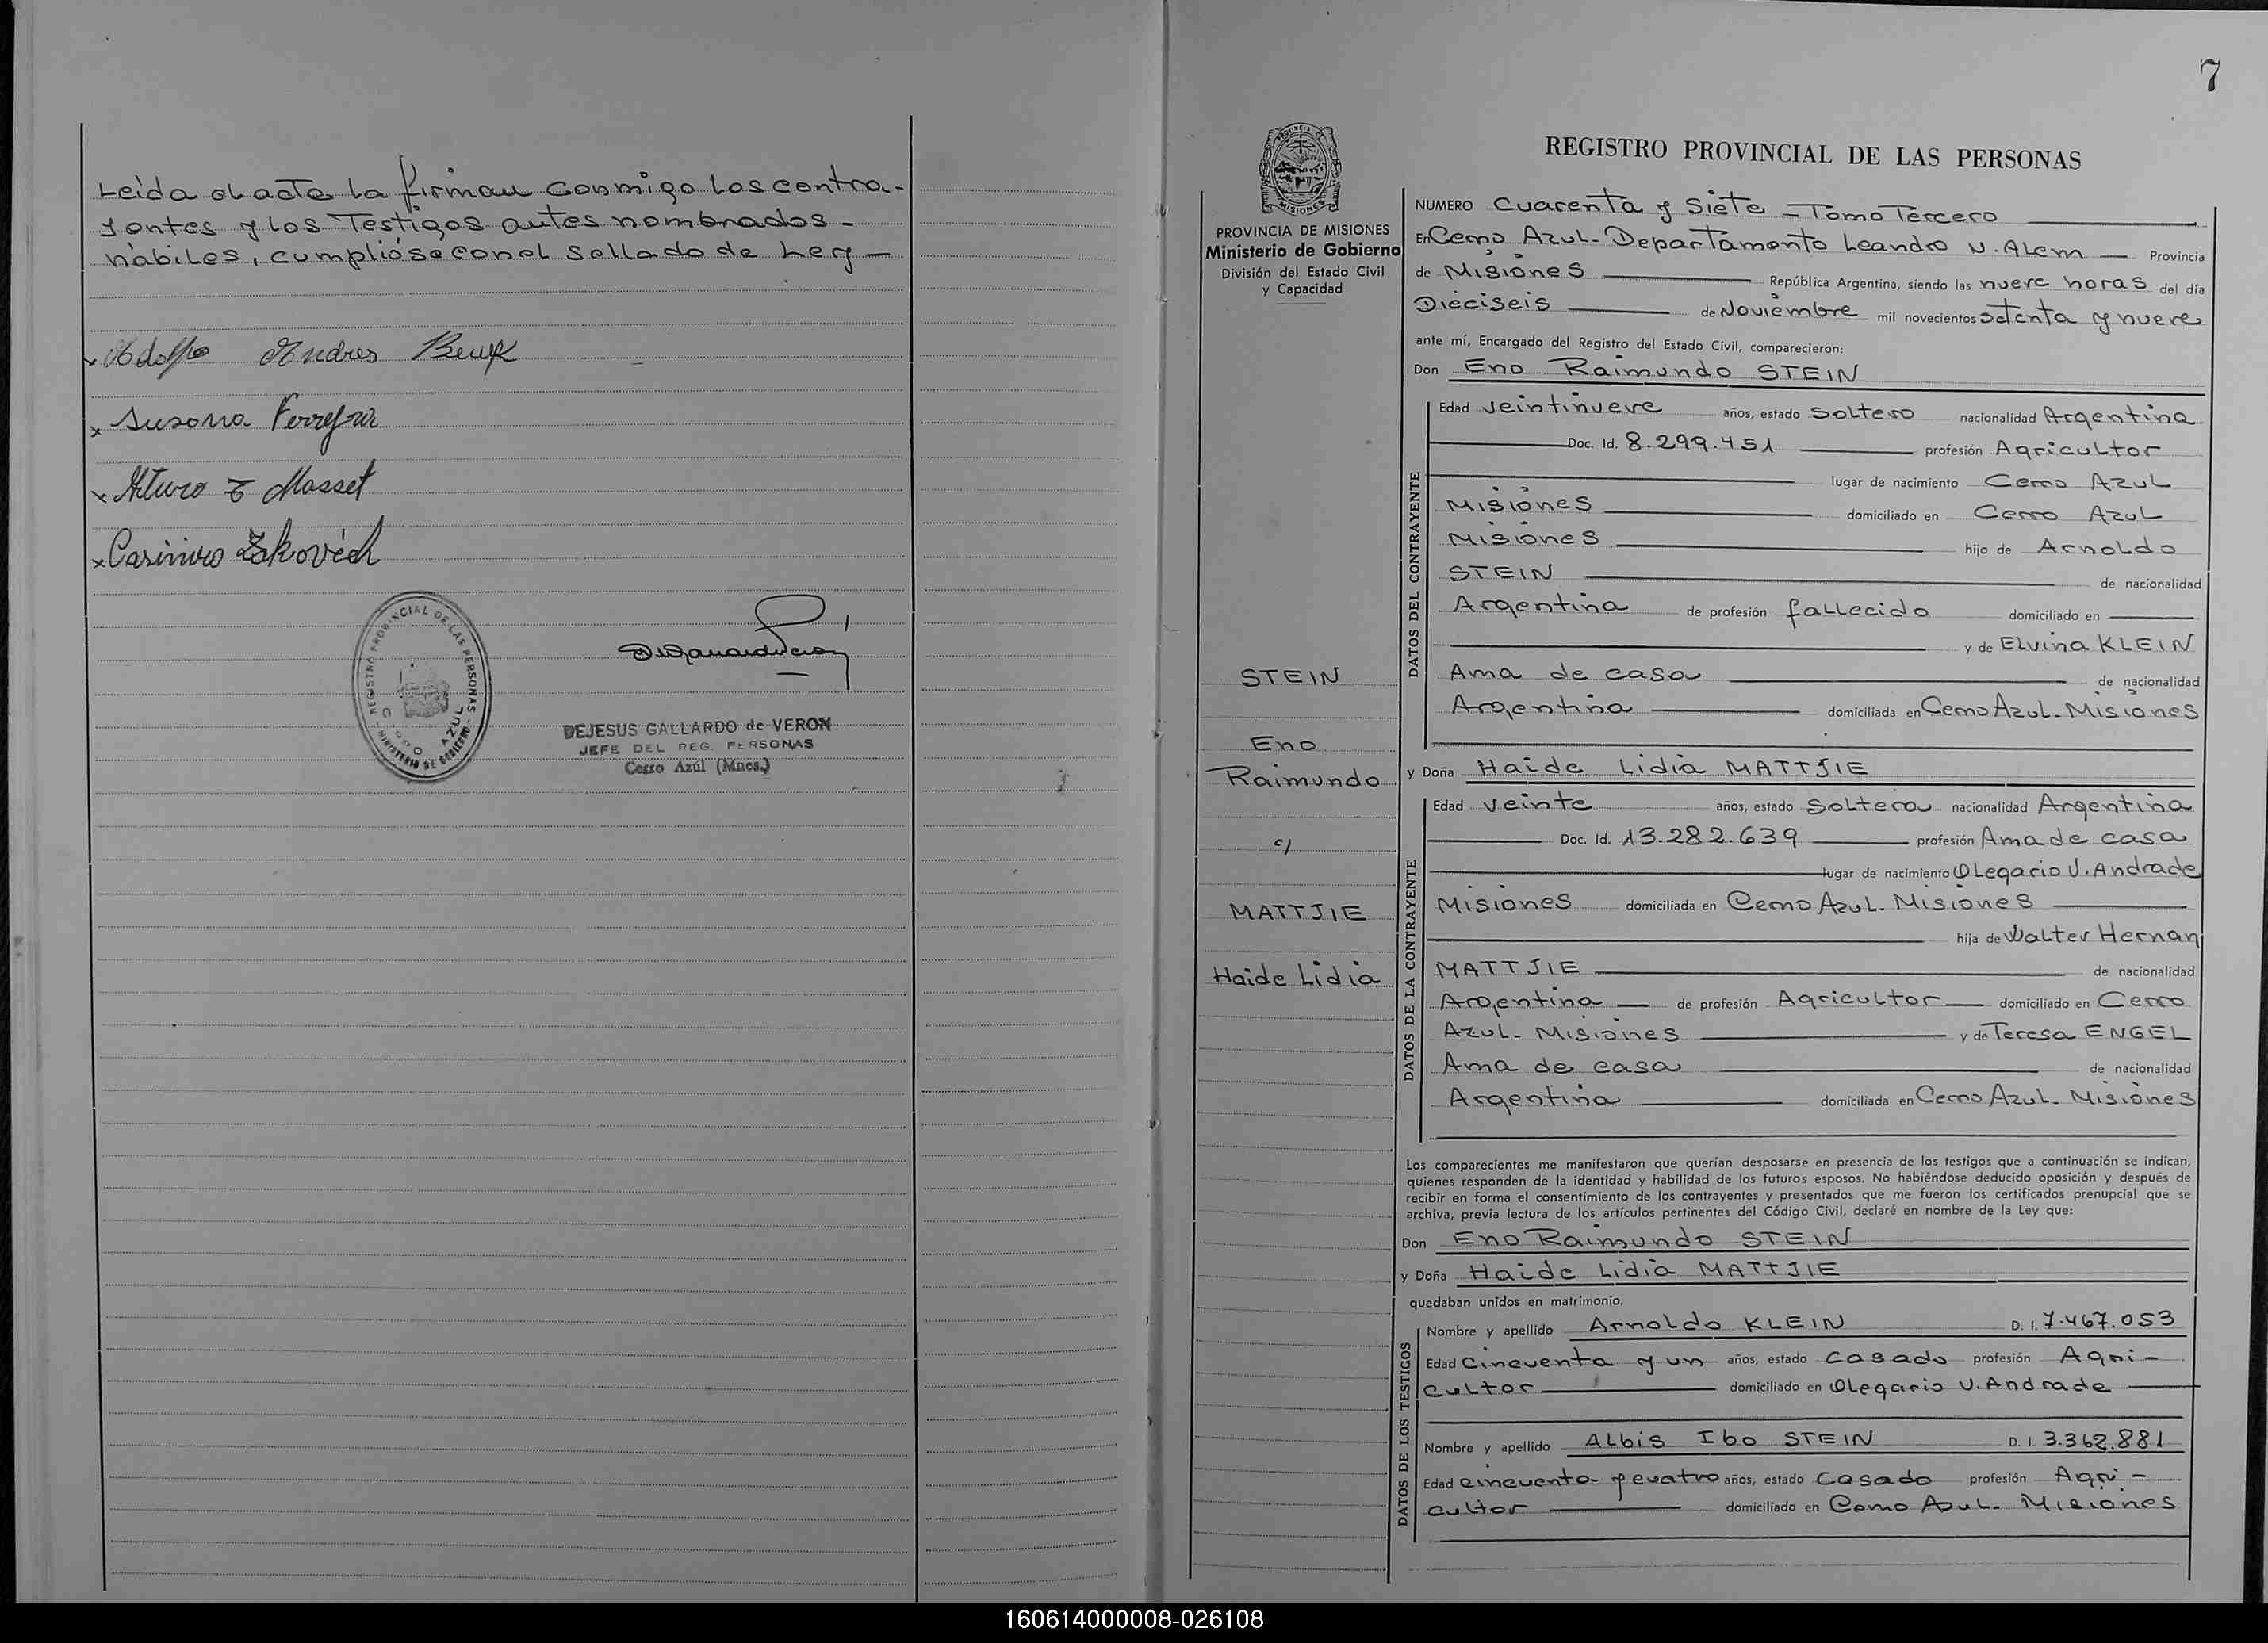 Leída el acta la firman conmigo los contra-
yentes y los Testigos antes nombrados -
hábiles, cumplióse con el sellado de Ley -
x Adolfo Andres
x Susana Ferreyra
x Arturo E Masset
x Casimiro Zakovich
REGISTRO PROVINCIAL DE LAS PERSONAS
CERRO AZUL
- MINISTERIO DE GOBIERNO -
DEJESUS GALLARDO de VERON
JEFE DEL REG. PERSONAS
Cerro Azúl (Mnes.)
7
PROVINCIA DE MISIONES
PROVINCIA DE MISIONES
Ministerio de Gobierno
División del Estado Civil
y Capacidad
STEIN
Eno
Raimundo
c/
MATTJIE
Haide Lidia
REGISTRO PROVINCIAL DE LAS PERSONAS
NUMERO Cuarenta y Siete - Tomo Tercero
En Cerro Azul - Departamento Leandro N. Alem — Provincia
de Misiones República Argentina, siendo las nueve horas del día
Dieciseis de Noviembre mil novecientos setenta y nueve
ante mí, Encargado del Registro del Estado Civil, comparecieron:
Don Eno Raimundo STEIN
DATOS DEL CONTRAYENTE
Edad veintinueve años, estado soltero nacionalidad Argentina
Doc. Id. 8.299.451 profesión Agricultor
lugar de nacimiento Cerro Azul
Misiones domiciliado en Cerro Azul
Misiones hijo de Arnoldo
STEIN de nacionalidad
Argentina de profesión fallecido domiciliado en
y de Elvina KLEIN
Ama de casa de nacionalidad
Argentina domiciliada en Cerro Azul - Misiones
y Doña Haide Lidia MATTJIE
DATOS DE LA CONTRAYENTE
Edad veinte años, estado soltera nacionalidad Argentina
Doc. Id. 13.282.639 profesión Ama de casa
lugar de nacimiento Olegario V. Andrade
Misiones domiciliada en Cerro Azul - Misiones
hija de Walter Hernan
MATTJIE de nacionalidad
Argentina — de profesión Agricultor — domiciliado en Cerro
Azul - Misiones y de Teresa ENGEL
Ama de casa de nacionalidad
Argentina domiciliada en Cerro Azul - Misiones
Los comparecientes me manifestaron que querían desposarse en presencia de los testigos que a continuación se indican,
quienes responden de la identidad y habilidad de los futuros esposos. No habiéndose deducido oposición y después de
recibir en forma el consentimiento de los contrayentes y presentados que me fueron los certificados prenupcial que se
archiva, previa lectura de los artículos pertinentes del Código Civil, declaré en nombre de la Ley que:
Don Eno Raimundo STEIN
y Doña Haide Lidia MATTJIE
quedaban unidos en matrimonio.
DATOS DE LOS TESTIGOS
Nombre y apellido Arnoldo KLEIN D. I. 7.467.053
Edad cincuenta y un años, estado casado profesión Agri-
cultor domiciliado en Olegario V. Andrade
Nombre y apellido Albis Ibo STEIN D. I. 3.362.881
Edad cincuenta y cuatro años, estado casado profesión Agri-
cultor domiciliado en Cerro Azul - Misiones
160614000008-026108